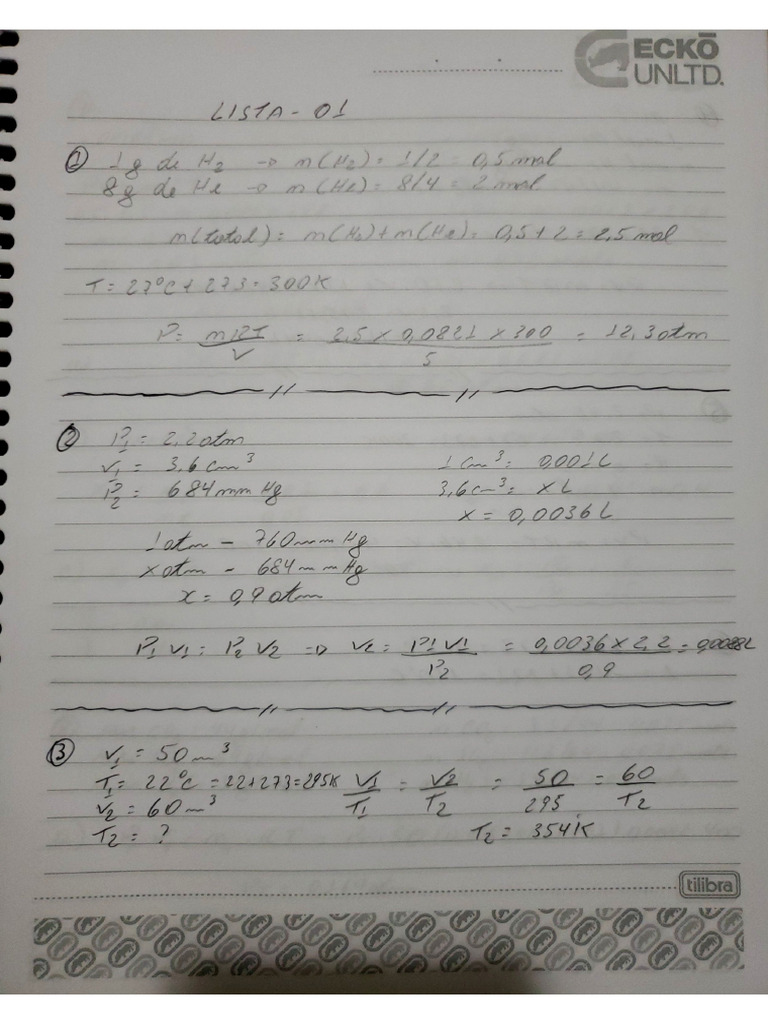 ECKŌ
UNLTD.
LISTA - 01
① 1g de H2 → n(H2) = 1/2 = 0,5 mol
8g de He → n(He) = 8/4 = 2 mol
n(total) = n(H2) + n(He) = 0,5 + 2 = 2,5 mol
T = 27°C + 273 = 300K
P = nRT / V = 2,5 x 0,0821 x 300 / 5 = 12,3 atm
② P1 = 2,2 atm
V1 = 3,6 cm³ 1 cm³ = 0,001L
P2 = 684 mmHg 3,6 cm³ = x L
x = 0,0036 L
1 atm - 760 mmHg
x atm - 684 mmHg
x = 0,9 atm
P1 V1 = P2 V2 => V2 = P1 V1 / P2 = 0,0036 x 2,2 / 0,9 = 0,0088L
③ V1 = 50 m³
T1 = 22°C = 22+273 = 295K V1/T1 = V2/T2 = 50/295 = 60/T2
V2 = 60 m³
T2 = ? T2 = 354K
tilibra